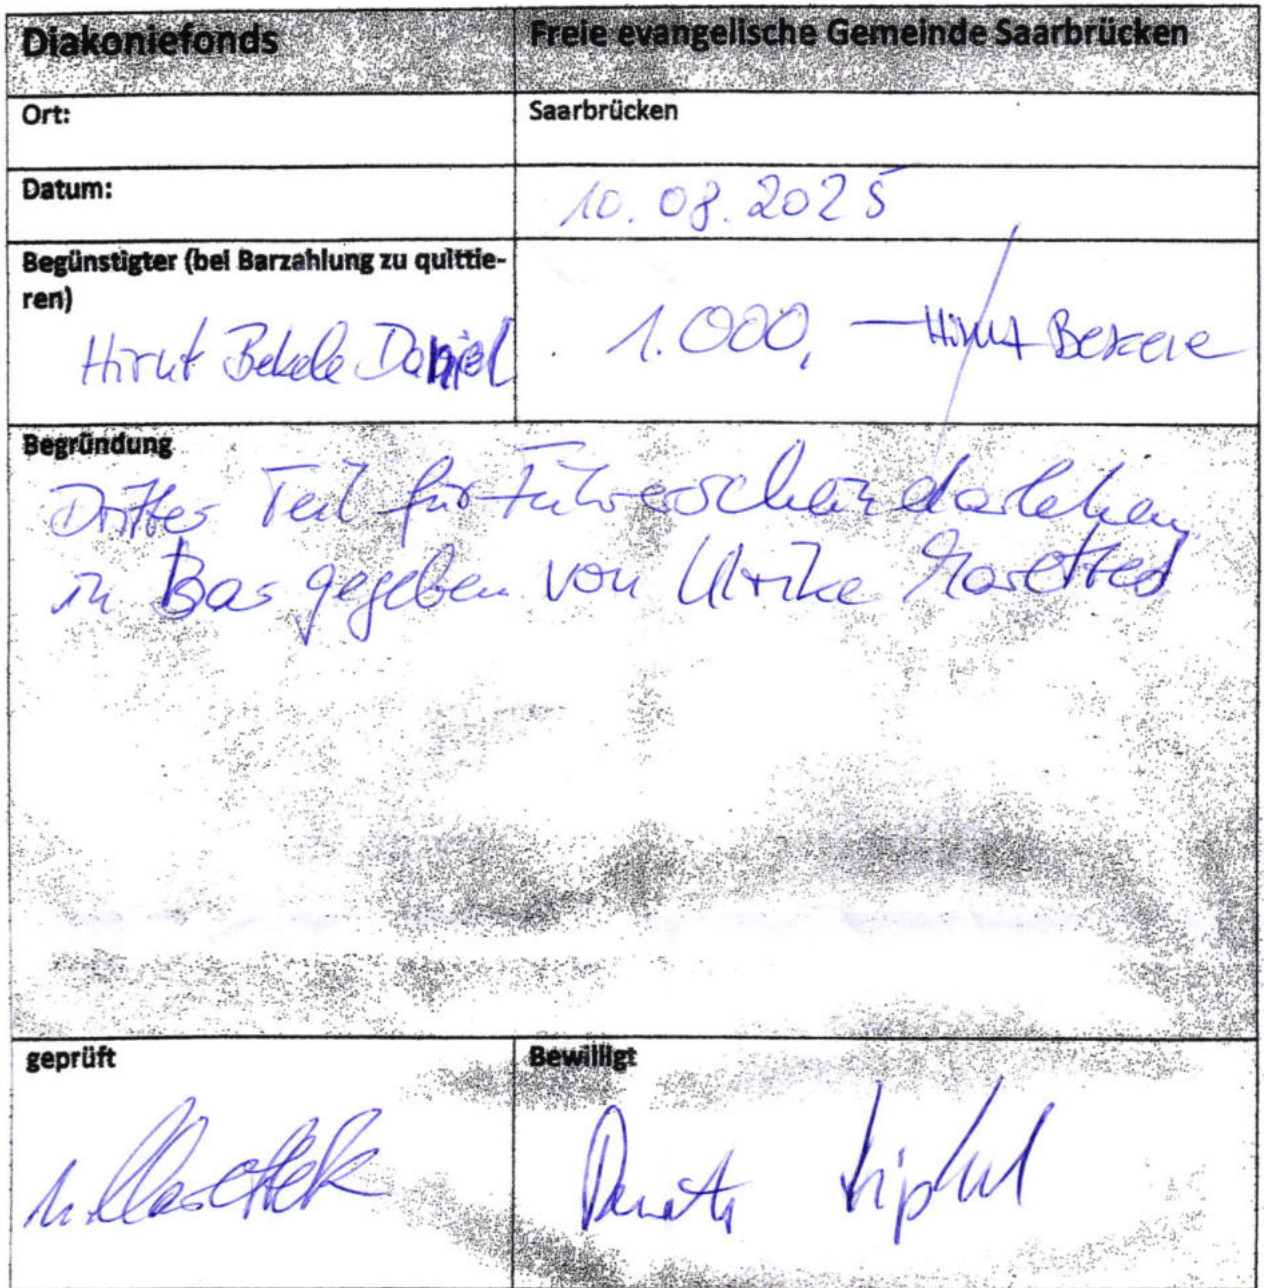 Diakoniefonds
Freie evangelische Gemeinde Saarbrücken
Ort:
Saarbrücken
Datum:
10.08.2025
Begünstigter (bei Barzahlung zu quittie-
ren)
Hirut Bekele Daniel
1.000,— Hirut Bekele
Begründung
Dritter Teil für Führerscheindarlehen
in Bar gegeben von Ulrike
geprüft
Bewilligt